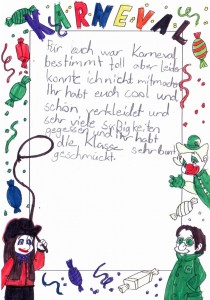 KARNEVAL
Für euch war Karneval
bestimmt toll aber leider
konnte ich nicht mitmachen
Ihr habt euch cool und
schön verkleidet und
sehr viele süßigkeiten
gegessen und ihr habt
die Klasse sehr bunt
geschmückt.